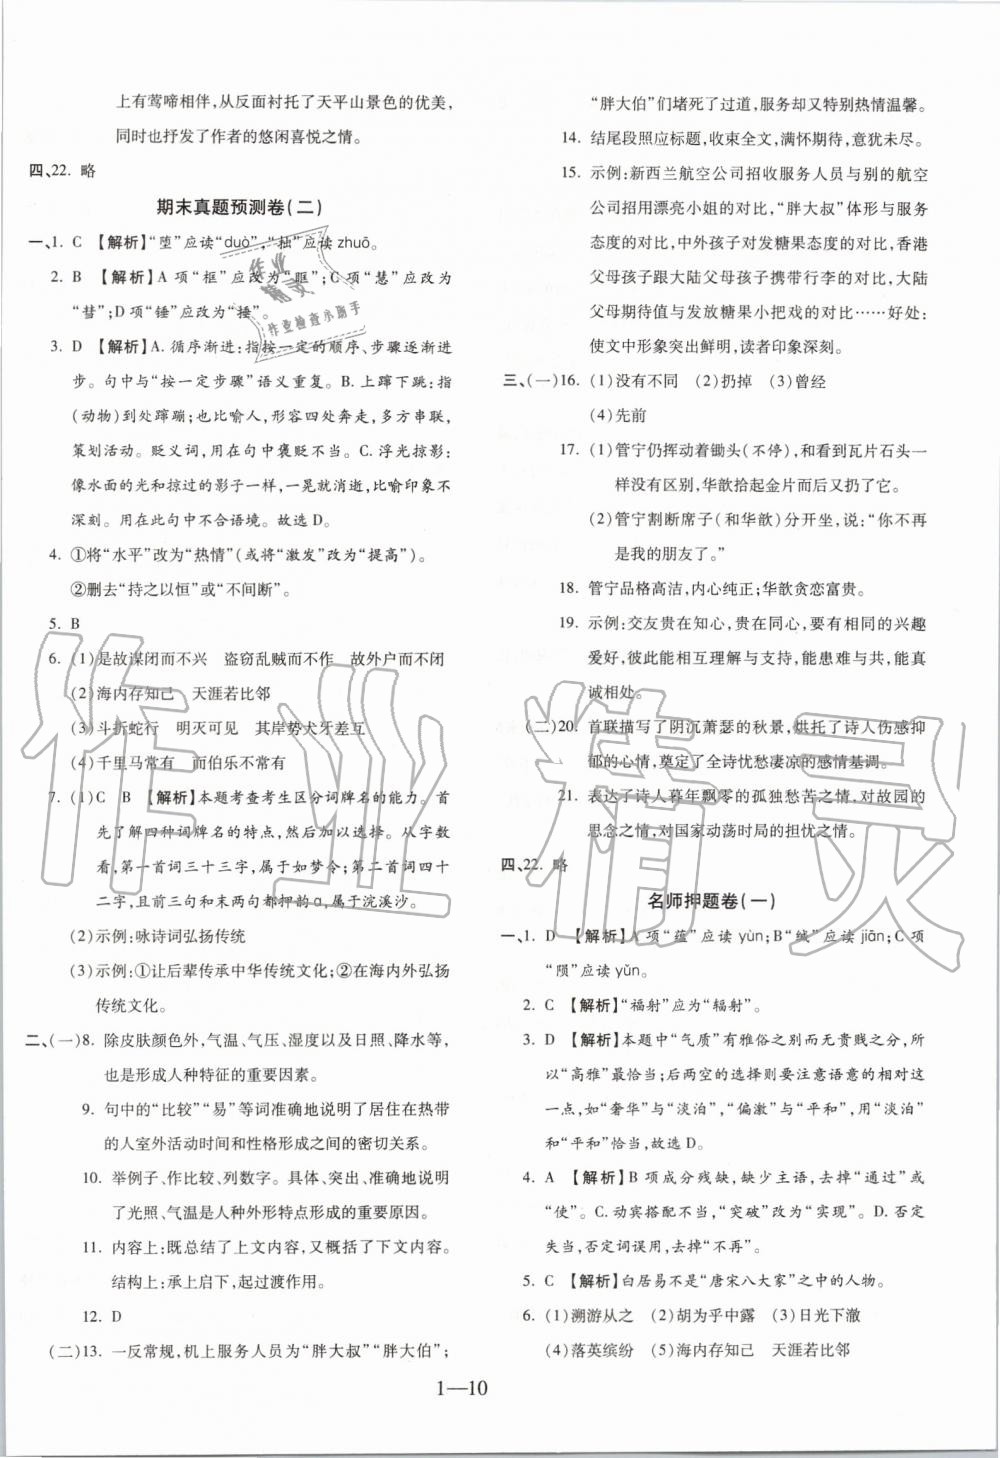 上有莺啼相伴,从反面衬托了天平山景色的优美,
同时也抒发了作者的悠闲喜悦之情。
四、22. 略
期末真题预测卷(二)
一、1. C 【解析】“堕”应读“duò”,“拙”应读 zhuō。
2. B 【解析】A 项“框”应改为“眶”;C 项“慧”应改为
“彗”;D 项“锤”应改为“捶”。
3. D 【解析】A. 循序渐进:指按一定的顺序、步骤逐渐进
步。句中与“按一定步骤”语义重复。B. 上蹿下跳:指
(动物)到处蹿蹦;也比喻人,形容四处奔走,多方串联,
策划活动。贬义词,用在句中褒贬不当。C. 浮光掠影:
像水面的光和掠过的影子一样,一晃就消逝,比喻印象不
深刻。用在此句中不合语境。故选 D。
4. ①将“水平”改为“热情”(或将“激发”改为“提高”)。
②删去“持之以恒”或“不间断”。
5. B
6. (1)是故谋闭而不兴 盗窃乱贼而不作 故外户而不闭
(2)海内存知己 天涯若比邻
(3)斗折蛇行 明灭可见 其岸势犬牙差互
(4)千里马常有 而伯乐不常有
7. (1)C B 【解析】本题考查考生区分词牌名的能力。首
先了解四种词牌名的特点,然后加以选择。从字数
看,第一首词三十三字,故为如梦令;第二首词四十
二字,且前三句和末两句都押的 ɑ,故为浣溪沙。
(2)示例:咏诗词弘扬传统
(3)示例:①让后辈传承中华传统文化;②在海内外弘扬
传统文化。
二、(一)8. 除皮肤颜色外,气温、气压、湿度以及日照、降水等,
也是形成人种特征的重要因素。
9. 句中的“比较”“易”等词准确地说明了居住在热带
的人室外活动时间和性格形成之间的密切关系。
10. 举例子、作比较、列数字。具体、突出、准确地说明
了光照、气温是人种外形特点形成的重要原因。
11. 内容上:既总结了上文内容,又概括了下文内容。
结构上:承上启下,起过渡作用。
12. D
(二)13. 一反常规,机上服务人员为“胖大叔”“胖大伯”;
“胖大伯”们堵死了过道,服务却又特别热情温馨。
14. 结尾段照应标题,收束全文,满怀期待,意犹未尽。
15. 示例:新西兰航空公司招收服务人员与别的航空
公司招用漂亮小姐的对比,“胖大叔”体形与服务
态度的对比,中外孩子对发糖果态度的对比,香港
父母孩子与大陆父母孩子携带行李的对比,大陆
父母期待值与发放糖果小把戏的对比……好处:
使文中形象突出鲜明,读者印象深刻。
三、(一)16. (1)没有不同 (2)扔掉 (3)曾经
(4)先前
17. (1)管宁仍挥动着锄头(不停),和看到瓦片石头一
样没有区别,华歆拾起金片而又扔了它。
(2)管宁割断席子(和华歆)分开坐,说:“你不再
是我的朋友了。”
18. 管宁品格高洁,内心纯正;华歆贪恋富贵。
19. 示例:交友贵在知心,贵在要有相同的兴趣
爱好,彼此能相互理解与支持,能患难与共,能真
诚相处。
(二)20. 首联描写了阴沉萧瑟的秋景,烘托了诗人伤感抑
郁的心情,奠定了全诗忧愁凄凉的感情基调。
21. 表达了诗人暮年飘零的孤独愁苦之情,对故园的
思念之情,对国家动荡时局的担忧之情。
四、22. 略
名师押题卷(一)
一、1. D 【解析】A 项“蕴”应读 yùn;B“缄”应读 jiān;C 项
“陨”应读 yǔn。
2. C 【解析】“福射”应为“辐射”。
3. D 【解析】本题中“气质”有雅俗之别而无贵贱之分,所
以“高雅”最恰当;后两空的选择则要注意语意的褒贬这
一点,如“奢华”与“淡泊”,“偏激”与“平和”,用“淡泊”
和“平和”恰当,故选 D。
4. A 【解析】B 项成分残缺,缺少主语,去掉“通过”或
“使”。C. 动宾搭配不当,“突破”改为“实现”。D. 否定
失当,否定词误用,去掉“不再”。
5. C 【解析】白居易不是“唐宋八大家”之中的人物。
6. (1)溯游从之 (2)胡为乎中露 (3)日光下澈
(4)落英缤纷 (5)海内存知己 天涯若比邻
1—10
作业精灵
作业检查小助手
作业精灵